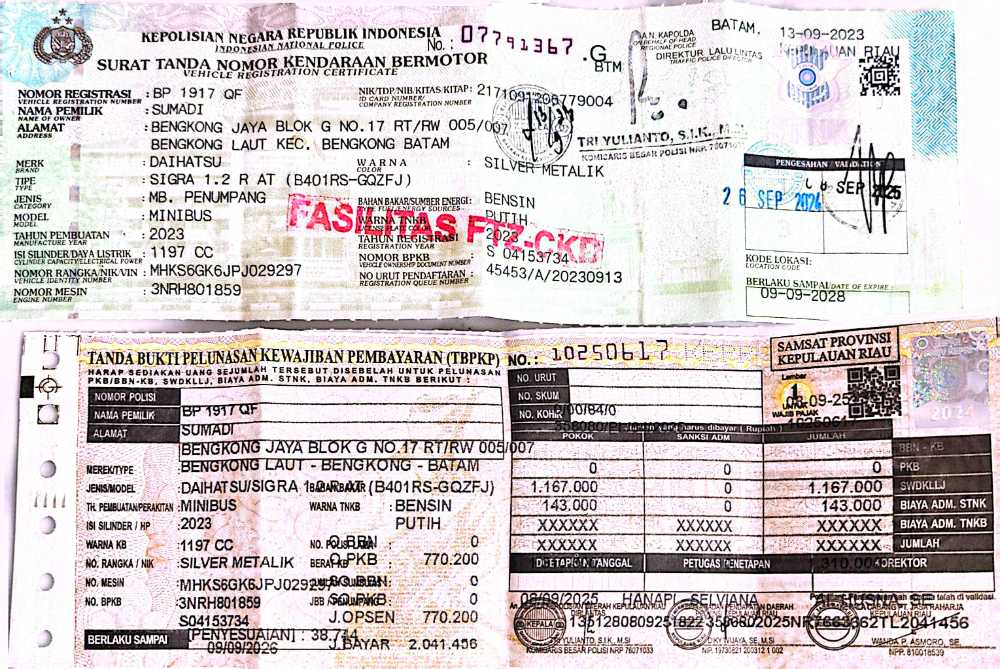 KEPOLISIAN NEGARA REPUBLIK INDONESIA
INDONESIAN NATIONAL POLICE
No.: 07791367 .G
BTM
SURAT TANDA NOMOR KENDARAAN BERMOTOR
VEHICLE REGISTRATION CERTIFICATE
BATAM, 13-09-2023
A.N. KAPOLDA KEPULAUAN RIAU
ON BEHALF OF HEAD
REGIONAL POLICE
DIREKTUR LALU LINTAS
TRAFFIC POLICE DIRECTOR
TRI YULIANTO, S.I.K., M.
KOMISARIS BESAR POLISI NRP
NOMOR REGISTRASI : BP 1917 QF
VEHICLE REGISTRATION NUMBER
NIK/TDP/NIB/KITAS/KITAP :
ID CARD NUMBER/
COMPANY REGISTRATION NUMBER
NAMA PEMILIK : SUMADI
NAME OF OWNER
ALAMAT : BENGKONG JAYA BLOK G NO.17 RT/RW 005/007
ADDRESS
BENGKONG LAUT KEC. BENGKONG BATAM
MERK : DAIHATSU
BRAND
WARNA : SILVER METALIK
COLOR
TIPE : SIGRA 1.2 R AT (B401RS-GQZFJ)
TYPE
JENIS : MB. PENUMPANG
CATEGORY
BAHAN BAKAR/SUMBER ENERGI : BENSIN
TYPE FUEL/ENERGY SOURCES
MODEL : MINIBUS
MODEL
WARNA TNKB : PUTIH
LICENSE PLATE COLOR
TAHUN PEMBUATAN : 2023
MANUFACTURE YEAR
TAHUN REGISTRASI : 2023
REGISTRATION YEAR
ISI SILINDER/DAYA LISTRIK : 1197 CC
CYLINDER CAPACITY/ELECTRICAL POWER
NOMOR BPKB : S 04153734
VEHICLE OWNERSHIP DOCUMENT NUMBER
NOMOR RANGKA/NIK/VIN : MHKS6GK6JPJ029297
VEHICLE IDENTITY NUMBER
NO URUT PENDAFTARAN : 45453/A/20230913
REGISTRATION QUEUE NUMBER
NOMOR MESIN : 3NRH801859
ENGINE NUMBER
FASILITAS FTZ-CKD
PENGESAHAN / VALIDATION
26 SEP 2024
08 SEP 2025
KODE LOKASI:
LOCATION CODE
BERLAKU SAMPAI DATE OF EXPIRE :
09-09-2028
TANDA BUKTI PELUNASAN KEWAJIBAN PEMBAYARAN (TBPKP)
NO.: 10250617
HARAP SEDIAKAN UANG SEJUMLAH TERSEBUT DISEBELAH UNTUK PELUNASAN
PKB/BBN-KB, SWDKLLJ, BIAYA ADM. STNK, BIAYA ADM. TNKB BERIKUT :
SAMSAT PROVINSI
KEPULAUAN RIAU
Lembar
1
UNTUK
WAJIB PAJAK
2024
NO. URUT
NO. SKUM
NO. KOHIR
harus dibayar ( Rupiah )
NOMOR POLISI
NAMA PEMILIK
BP 1917 QF
ALAMAT
SUMADI
BENGKONG JAYA BLOK G NO.17 RT/RW 005/007
MEREK/TYPE : BENGKONG LAUT - BENGKONG - BATAM
JENIS/MODEL : DAIHATSU/SIGRA 1.2 R AT (B401RS-GQZFJ)
TH. PEMBUATAN/PERAKITAN : MINIBUS
WARNA TNKB : BENSIN
ISI SILINDER / HP : 2023
PUTIH
WARNA KB : 1197 CC
O.BBN : 0
NO. RANGKA / NIK : SILVER METALIK
O.PKB 770.200
NO. MESIN : MHKS6GK6JPJ029297
SO.BBN: 0
NO. BPKB : 3NRH801859
SO.PKB : 0
S04153734
J.OPSEN : 770.200
[PENYESUAIAN] : 38.744
J.BAYAR : 2.041.456
BERLAKU SAMPAI
09/09/2026
POKOK SANKSI ADM JUMLAH
BBN - KB
0 0 0 PKB
1.167.000 0 1.167.000 SWDKLLJ
143.000 0 143.000 BIAYA ADM. STNK
XXXXXX XXXXXX XXXXXX BIAYA ADM. TNKB
XXXXXX XXXXXX XXXXXX JUMLAH
DITETAPKAN TANGGAL
PETUGAS PENETAPAN
KOREKTOR
310.000
08/09/2025 HANAPI SELVIANA
telah di validasi
KEPALA